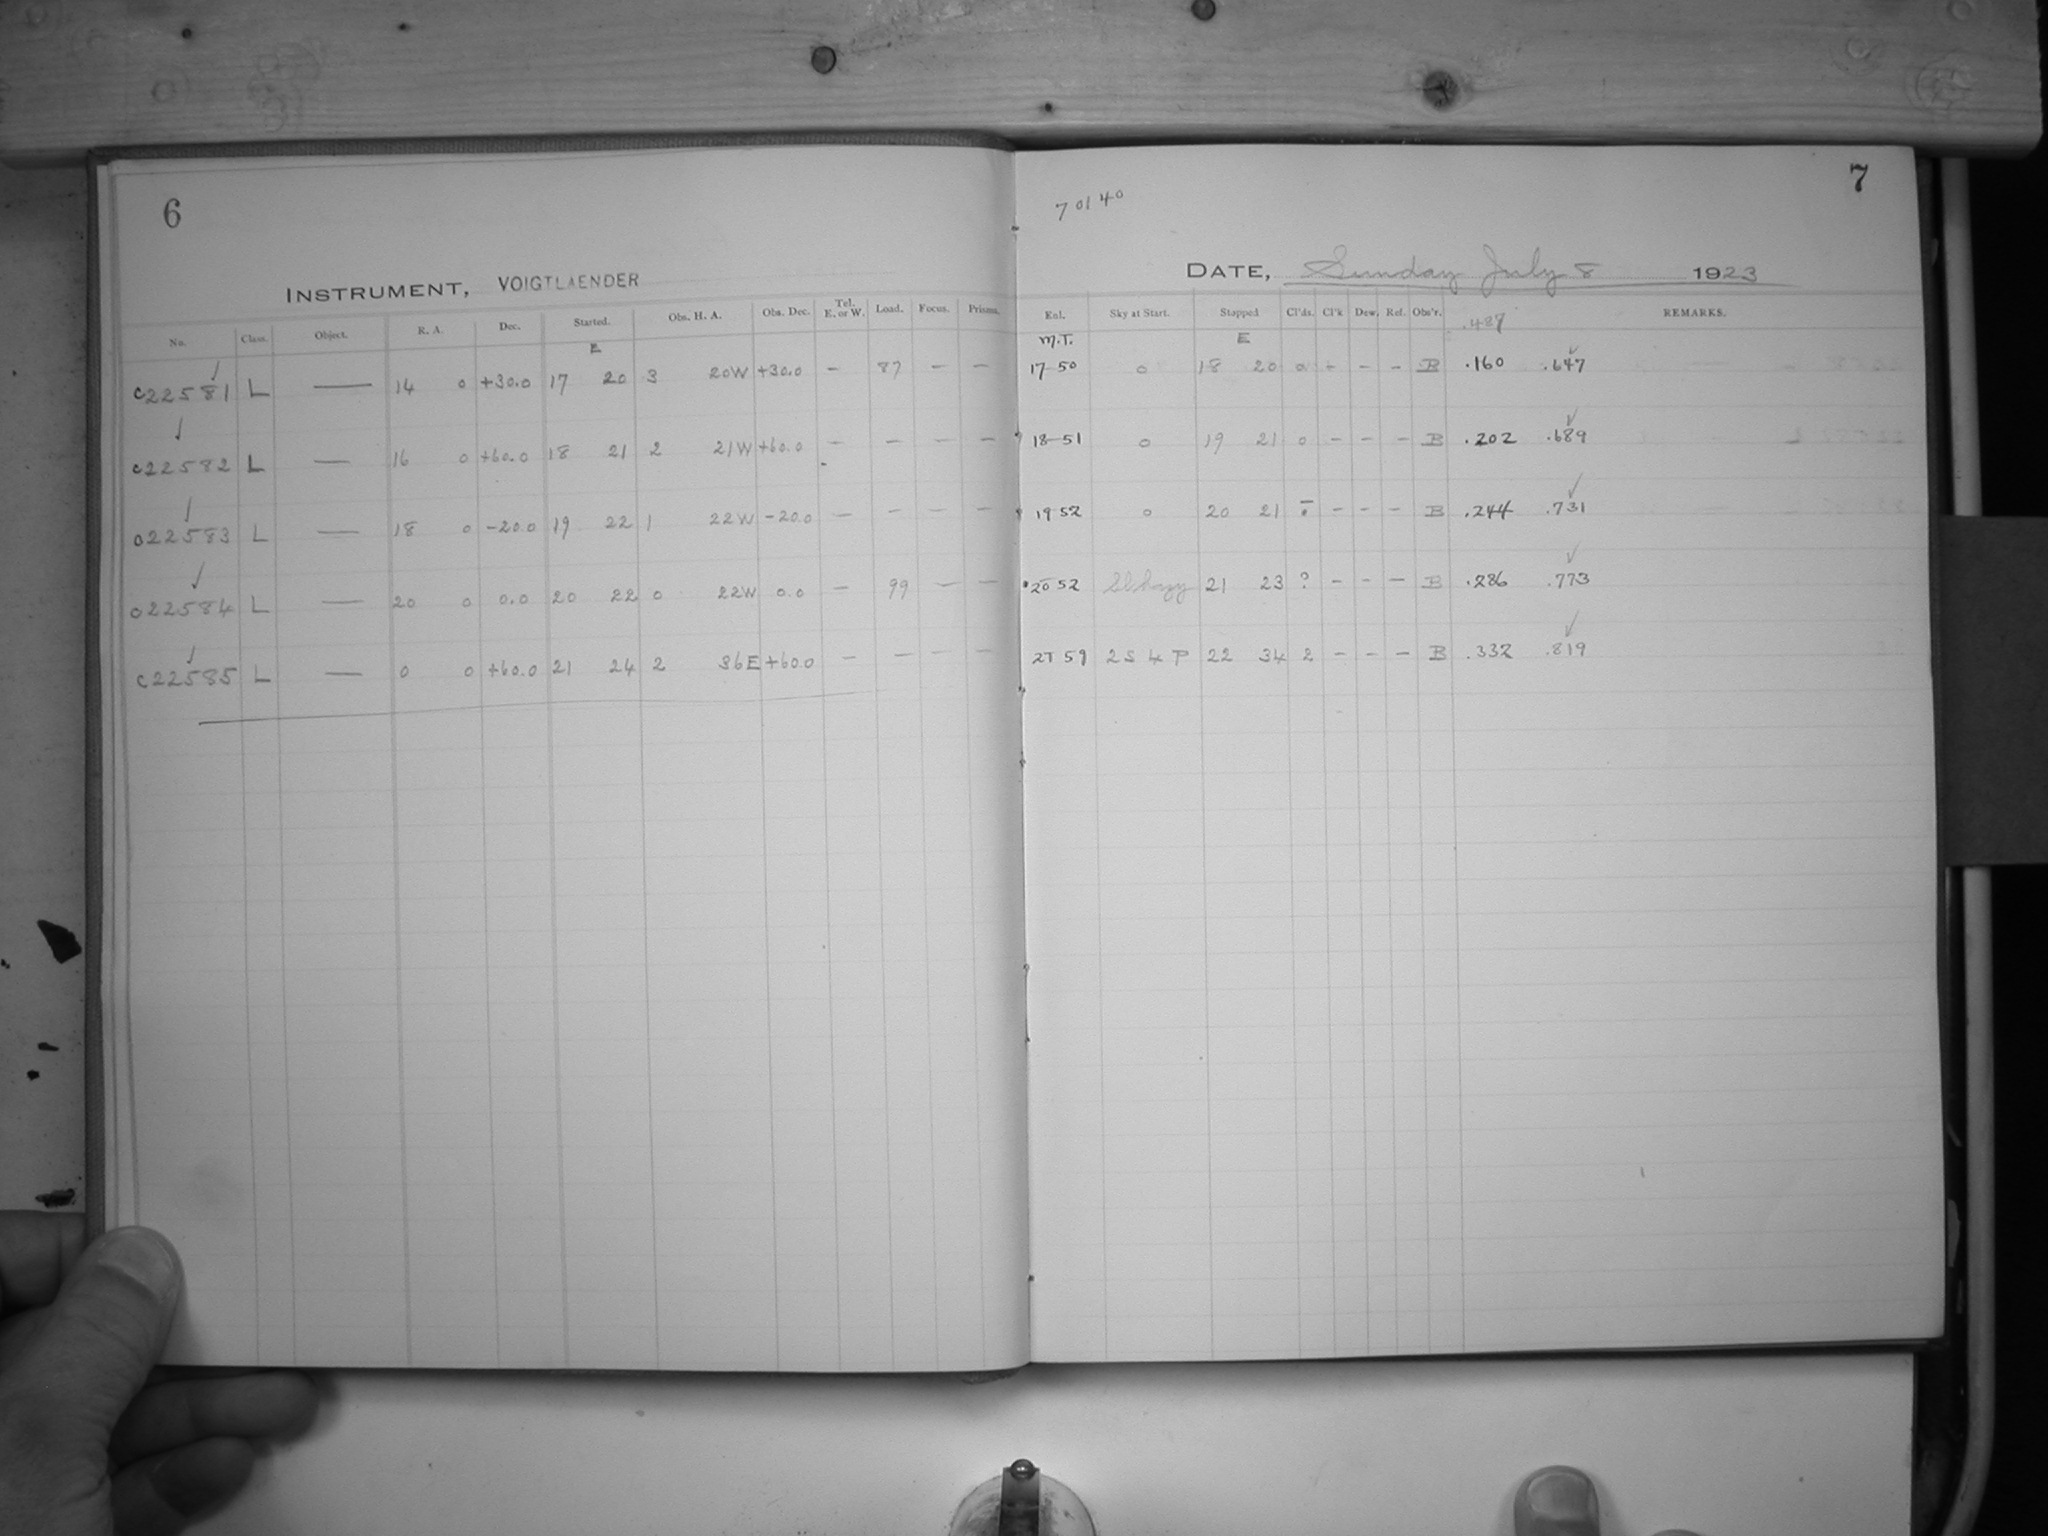 6
INSTRUMENT, VOIGTLAENDER
No. Class. Object. R. A. Dec. Started. Obs. H. A. Obs. Dec. Tel. E. or W. Load. Focus. Prisms.
E
c22581 L — 14 0 +30.0 17 20 3 20W +30.0 – 87 – –
c22582 L — 16 0 +60.0 18 21 2 21W +60.0 – – – –
c22583 L — 18 0 -20.0 19 22 1 22W -20.0 – – – –
c22584 L — 20 0 0.0 20 22 0 22W 0.0 – 99 – –
c22585 L — 0 0 +60.0 21 24 2 36E +60.0 – – – –
7
70140
DATE, Sunday July 8 1923
Enl. Sky at Start. Stopped Cl'ds. Cl'k Dew. Ref. Obs'r. REMARKS.
M.T. E .487
17 50 0 18 20 0 – – – B .160 .647
18 51 0 19 21 0 – – – B .202 .689
19 52 0 20 21 – – – B .244 .731
20 52 Sl hazy 21 23 ? – – – B .286 .773
21 59 2 S 4 P 22 34 2 – – – B .332 .819